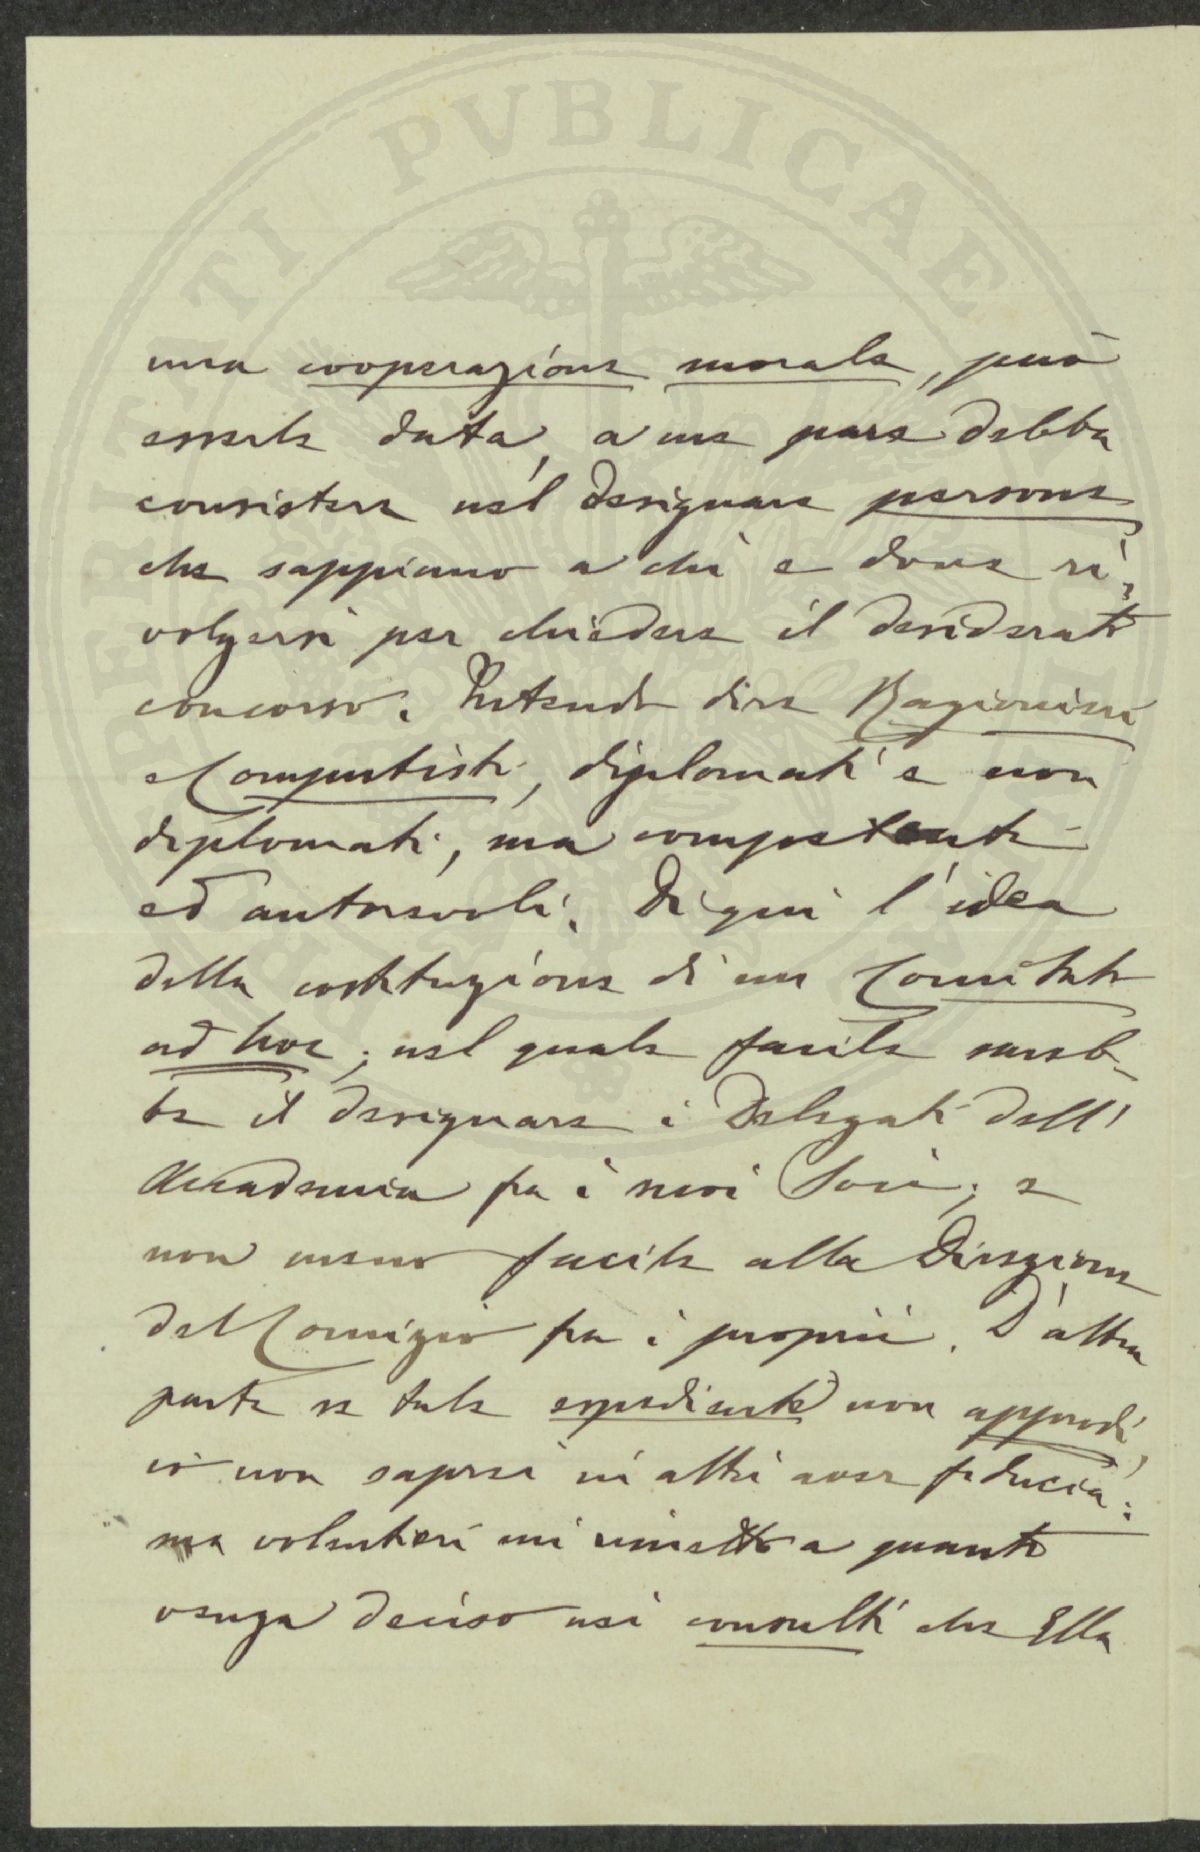 PERITI PVBLICAE
una cooperazione morale, può
essere data, a me pare debba
consistere nel designare persone
che sappiano a chi e dove ri-
volgersi per chiedere il desiderato
concorso. Intendo dire Ragionieri
e Computisti, diplomati e non
diplomati, ma competenti
ed autorevoli. Di qui l'idea
della costituzione di un Comitato
ad hoc; nel quale facile sareb-
be il designare i Delegati dell'
Accademia fra i suoi Soci; e
non meno facile alla Direzione
del Comizio fra i proprii. D'altra
parte se tale espediente non approdi,
io non saprei in altri aver fiducia:
ma volentieri mi rimetto a quanto
venga deciso nei consulti che Ella